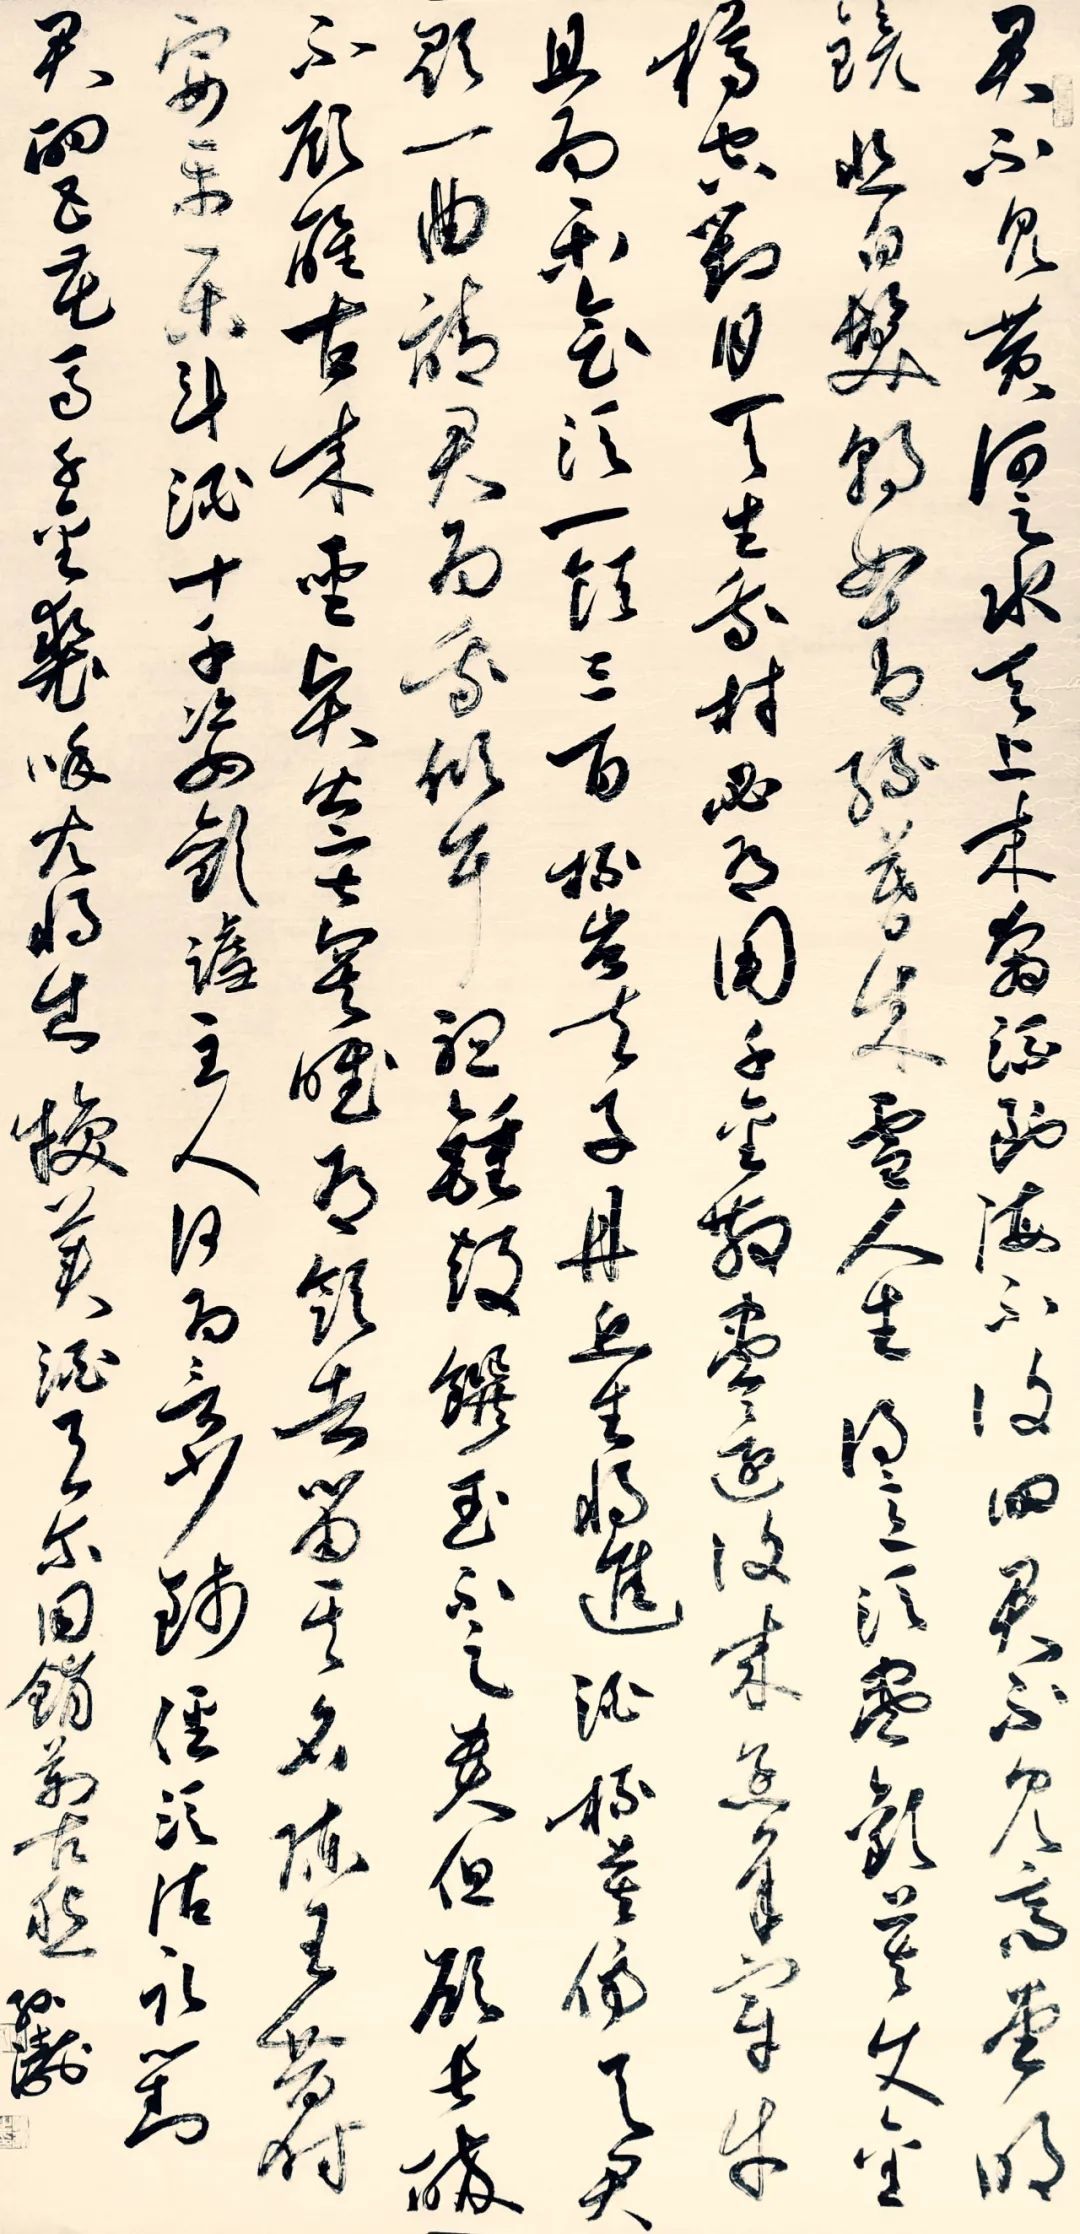 君不見黃河之水天上來奔流到海不復回君不見高堂明
鏡悲白髮朝如青絲暮成雪人生得意須盡歡莫使金
樽空對月天生我材必有用千金散盡還復來烹羊宰牛
且為樂會須一飲三百杯岑夫子丹丘生將進酒杯莫停與君
歌一曲請君為我傾耳聽鐘鼓饌玉不足貴但願長醉
不願醒古來聖賢皆寂寞唯有飲者留其名陳王昔時
宴平樂斗酒十千恣歡謔主人何為言少錢徑須沽取對
君酌五花馬千金裘呼兒將出換美酒與爾同銷萬古愁